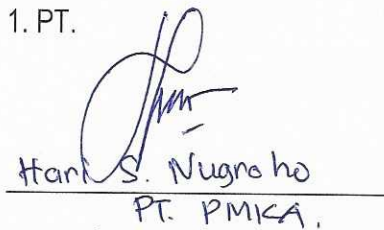 1. PT.
Hari S. Nugroho
PT. PMKA.